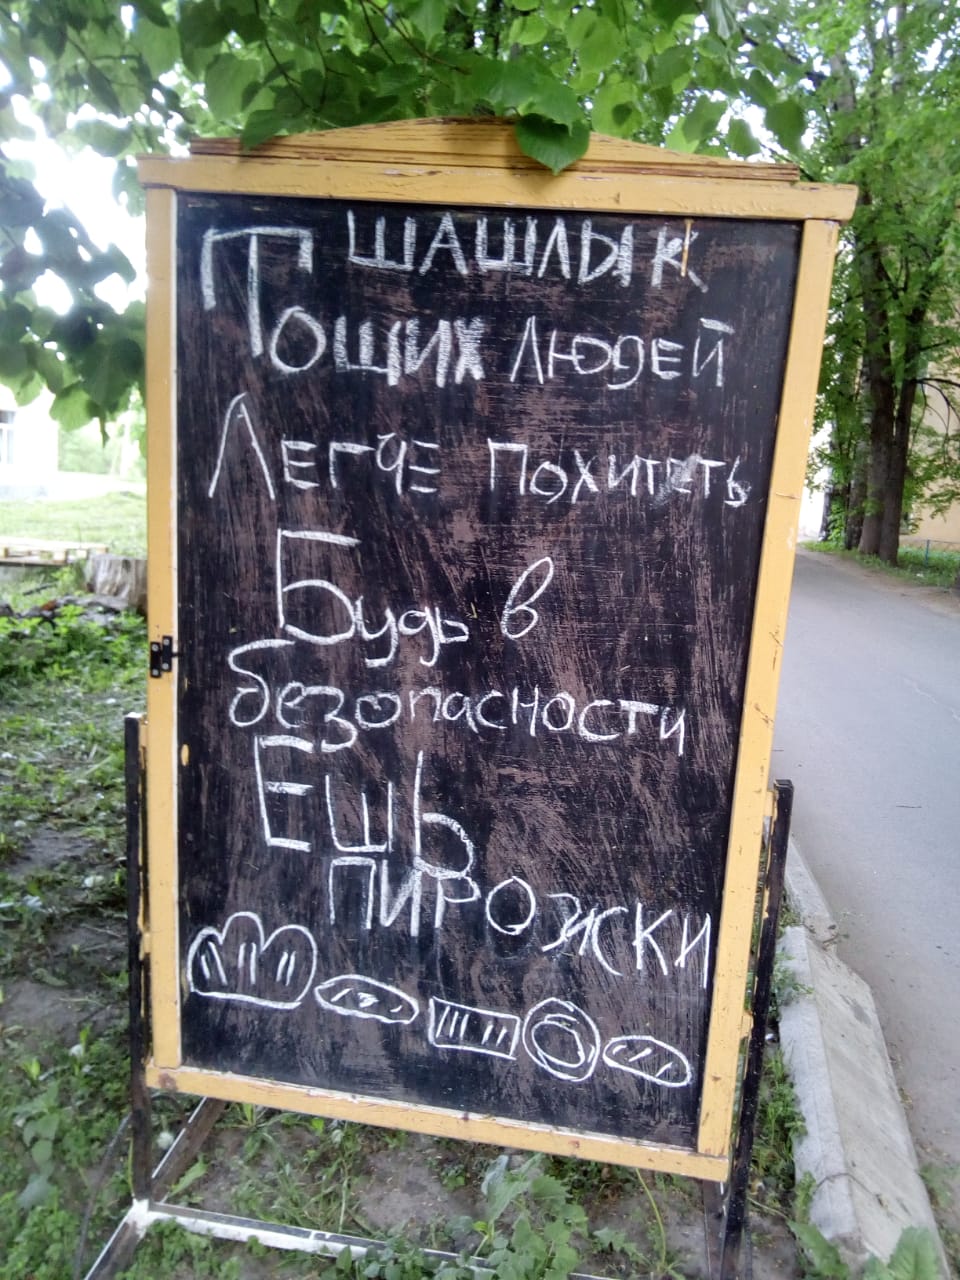 ШАШЛЫК
Тощих людей
Легче похитить
Будь в
безопасности
Ешь
пирожки